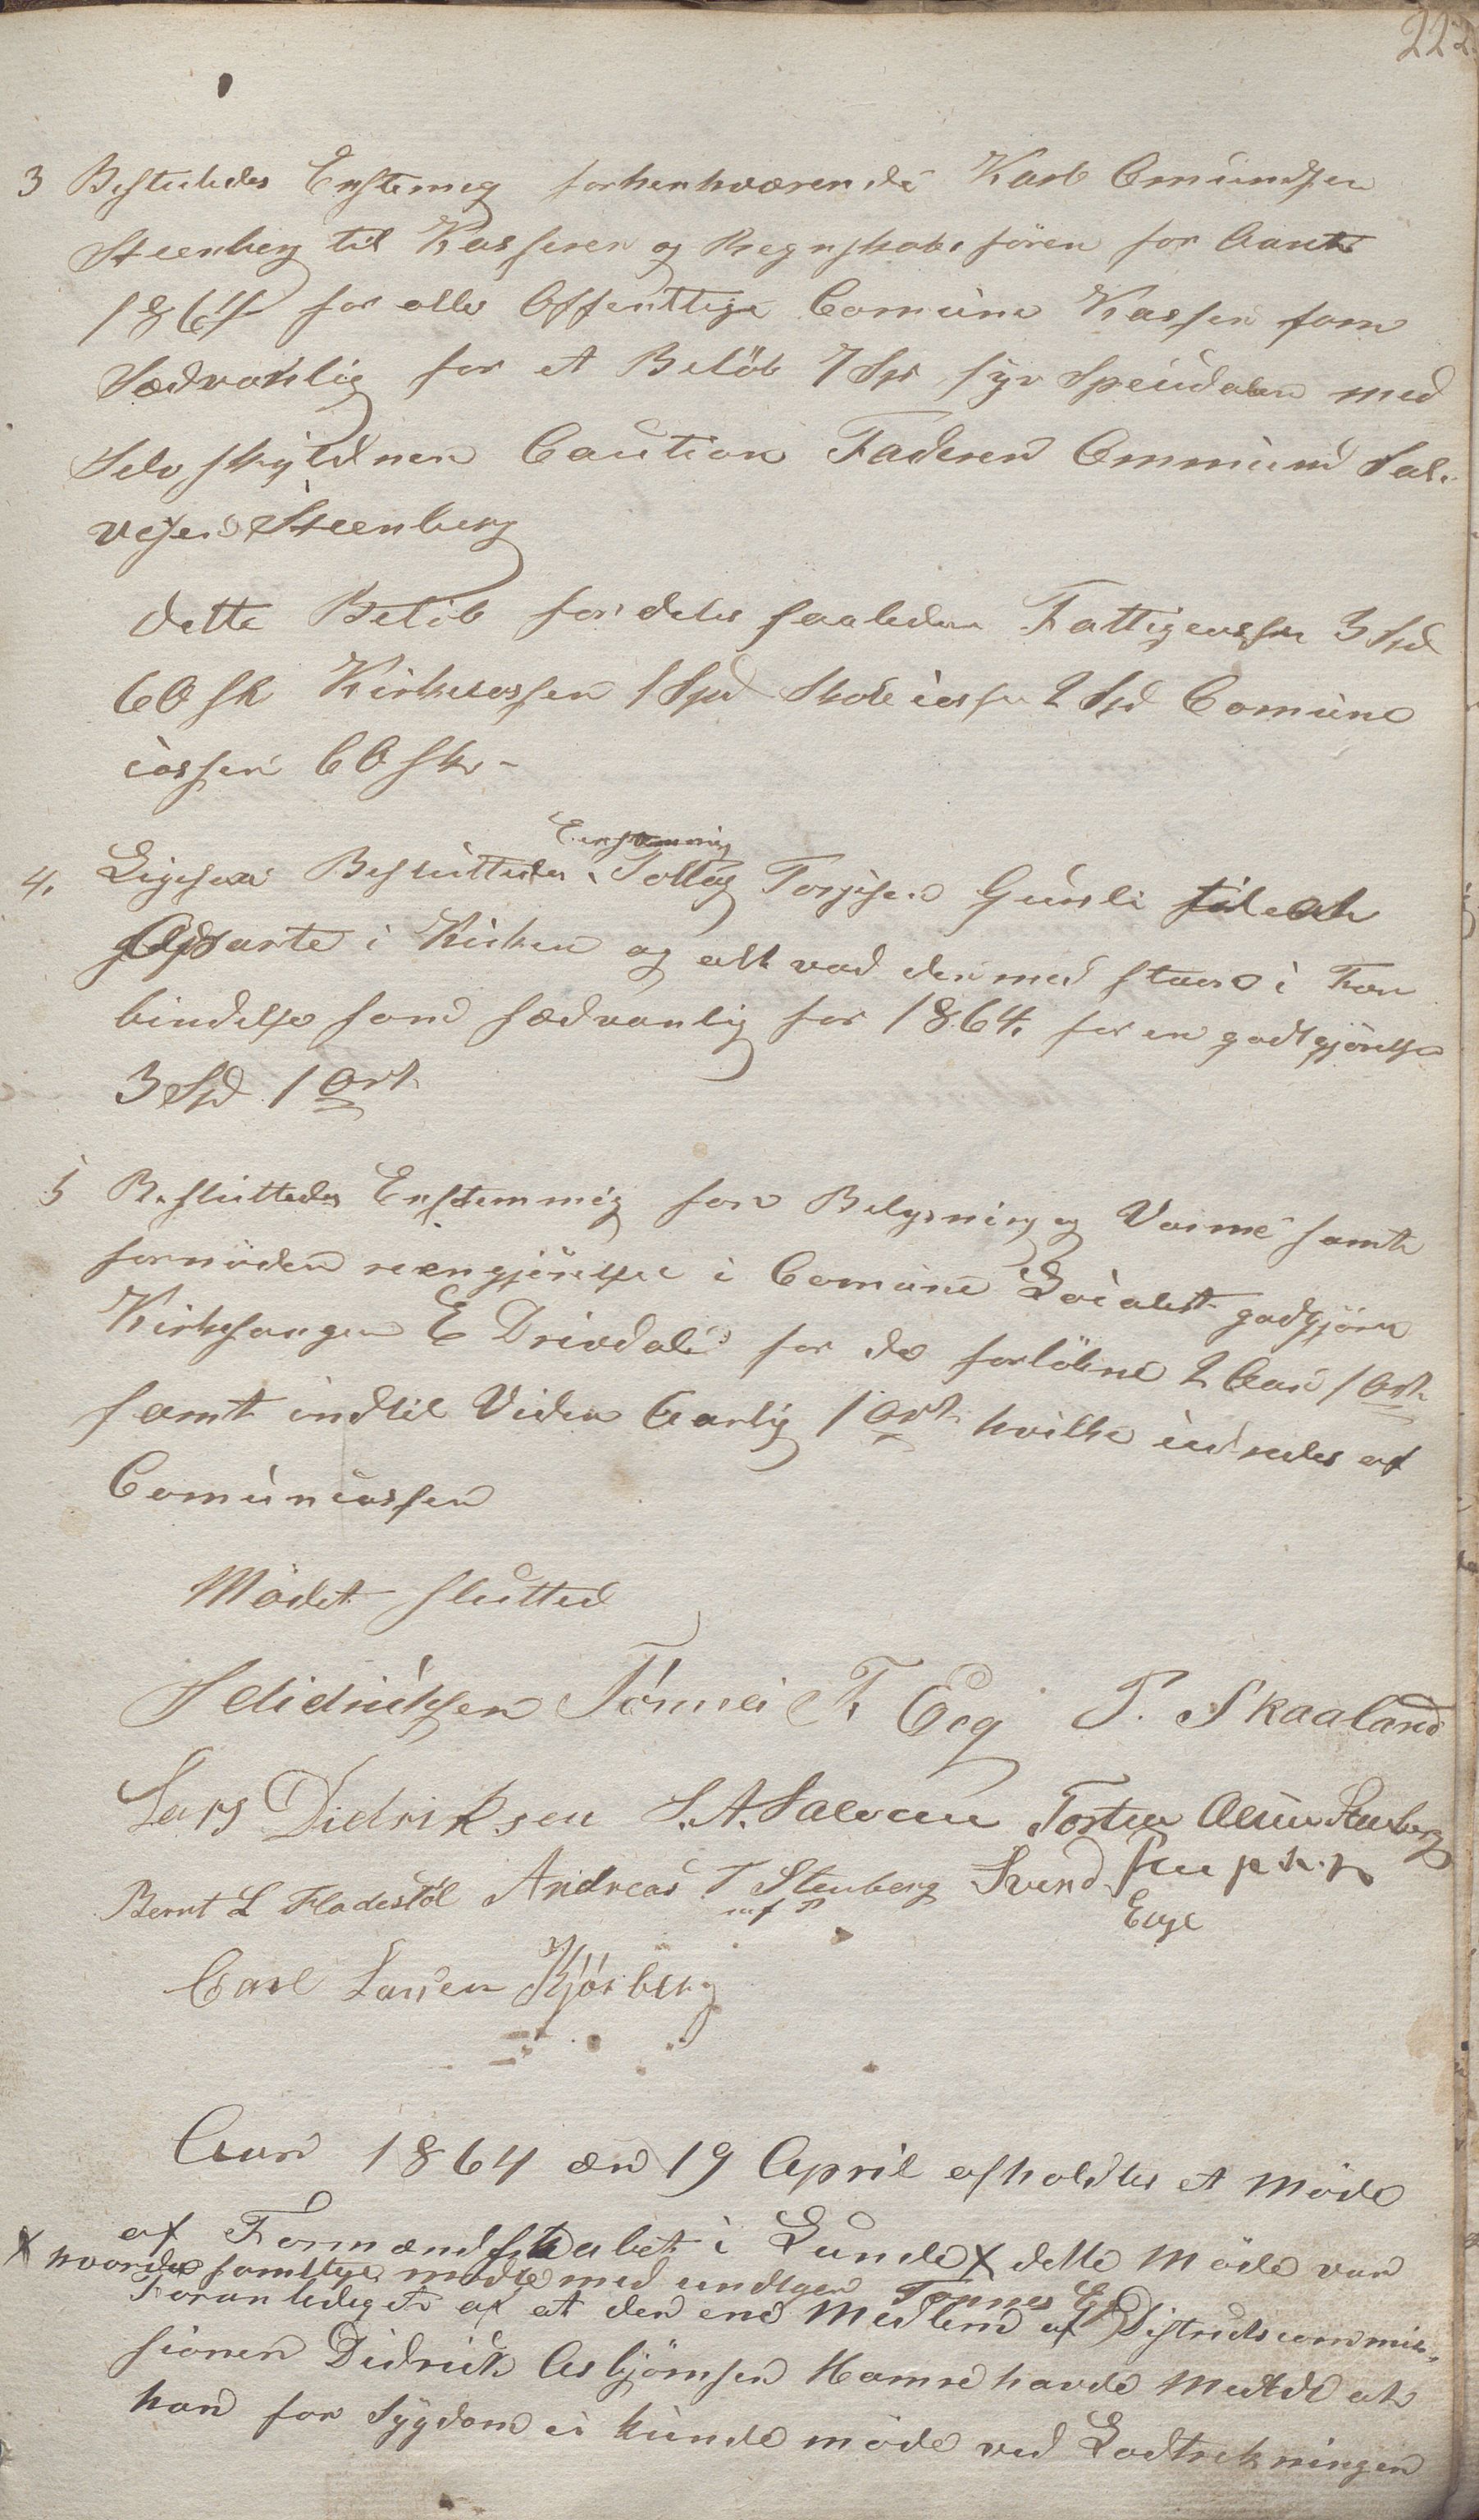 222
3 Besluttedes Enstemig forhenhværende Karl Omundsen
Steenberg til Kasserer og Regnskabsfören for Aaret
1864 for alle Offentlige Comune Kasser som
Sædvanlig for et Belöb 7 Spd syv Speciedaler med
Selvskyldner Caution Faderen Ommund Sal-
vesen Steenberg
dette Belöb fordeles saaledes Fattigcassen 3 Spd
60 sk Kirkecassen 1 Spd Skolecassen 2 Spd Comune
cassen 60 sk -
Eenstemmig
4. Ligesaa Besluttedes Tollag Torjusen Gunsli til at
Opvarte i Kirken og alt vad der med staar i For
bindelse som sædvanlig for 1864. for en godtgjörelse
3 Spd 1 Ort
5 Besluttedes Enstemmig for Belysning og Varme samt
fornöden reengjörelse i Comune Localet godgjöres
Kirkesanger E Drivdal for de forlöbne 2 Aar 1 Ort
samt indtil Viden Aarlig 1 Ort hvilke udredes af
Comuncassen
Mödet slutted
S Didriksen Tönnes T Eeg T. Skaaland
Lars Didriksen S. A. Salvesen Torsten Steenberg
Bernt L Fladestöl Andreas T Stenberg Svend
m f P Eege
Carl Larsen Kjörberg
Aar 1864 den 19 April afholdtes et Möde
af Formandskabet i Lunde x dette Möde var
x hvorder samtlige mödte med undtgen Tønnes Eg
Foranlediget af at den ene Medlem af Districtscommis-
sionen Didrick Asbjörnsen Hamre havde Meldt at
han for Sygdom ei kunde möde ved Lodtrekningen